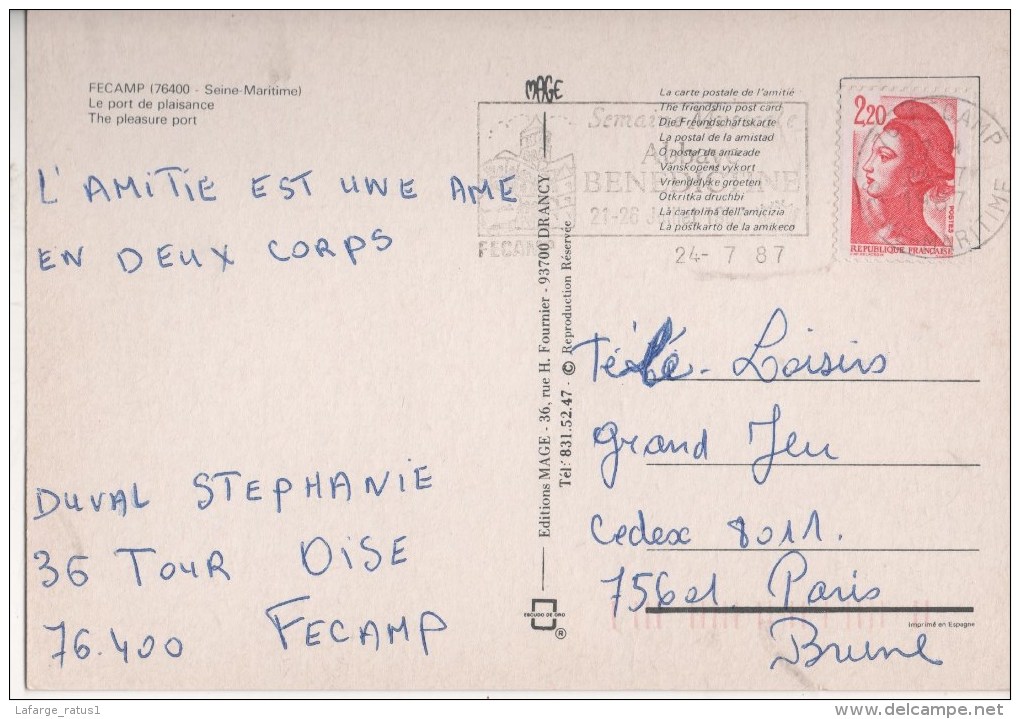 FECAMP (76400 - Seine-Maritime)
Le port de plaisance
The pleasure port
L'AMITIE EST UNE AME
EN DEUX CORPS
DUVAL STEPHANIE
36 TOUR OISE
76.400 FECAMP
MAGE
Editions MAGE - 36, rue H. Fournier - 93700 DRANCY
Tél: 831.52.47 - © Reproduction Réservée
ESCUDO DE ORO
®
La carte postale de l'amitié
The friendship post card
Die Freundschaftskarte
La postal de la amistad
O postal de amizade
Vänskopens vykort
Vriendelyke groeten
Otkritka druchbi
La cartolina dell'amicizia
La postkarto de la amikeco
Semaine Musicale
Abbaye
BENEDICTINE
21-26
FECAMP
24- 7 87
2,20
POSTES
REPUBLIQUE FRANÇAISE
FECAMP
MARITIME
Télé-Loisirs
Grand Jeu
Cedex 8011.
75601 Paris
Brune
Imprimé en Espagne
Lafarge_ratus1
delcampe.net